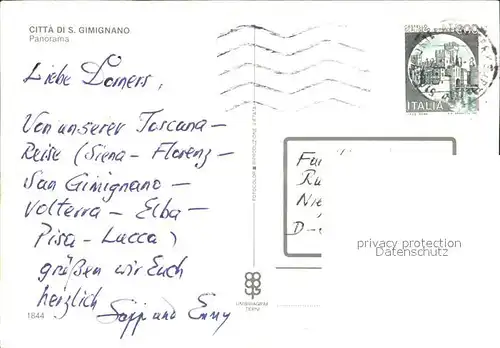 CITTÀ DI S. GIMIGNANO
Panorama
Liebe Dorners,
Von unserer Toscana-
Reise (Siena - Florenz -
San Gimignano -
Volterra - Elba -
Pisa - Lucca)
grüßen wir Euch
herzlich Sepp und Enny
1844
ITALIA
Fa
Ru
Nie
D-
privacy protection
Datenschutz